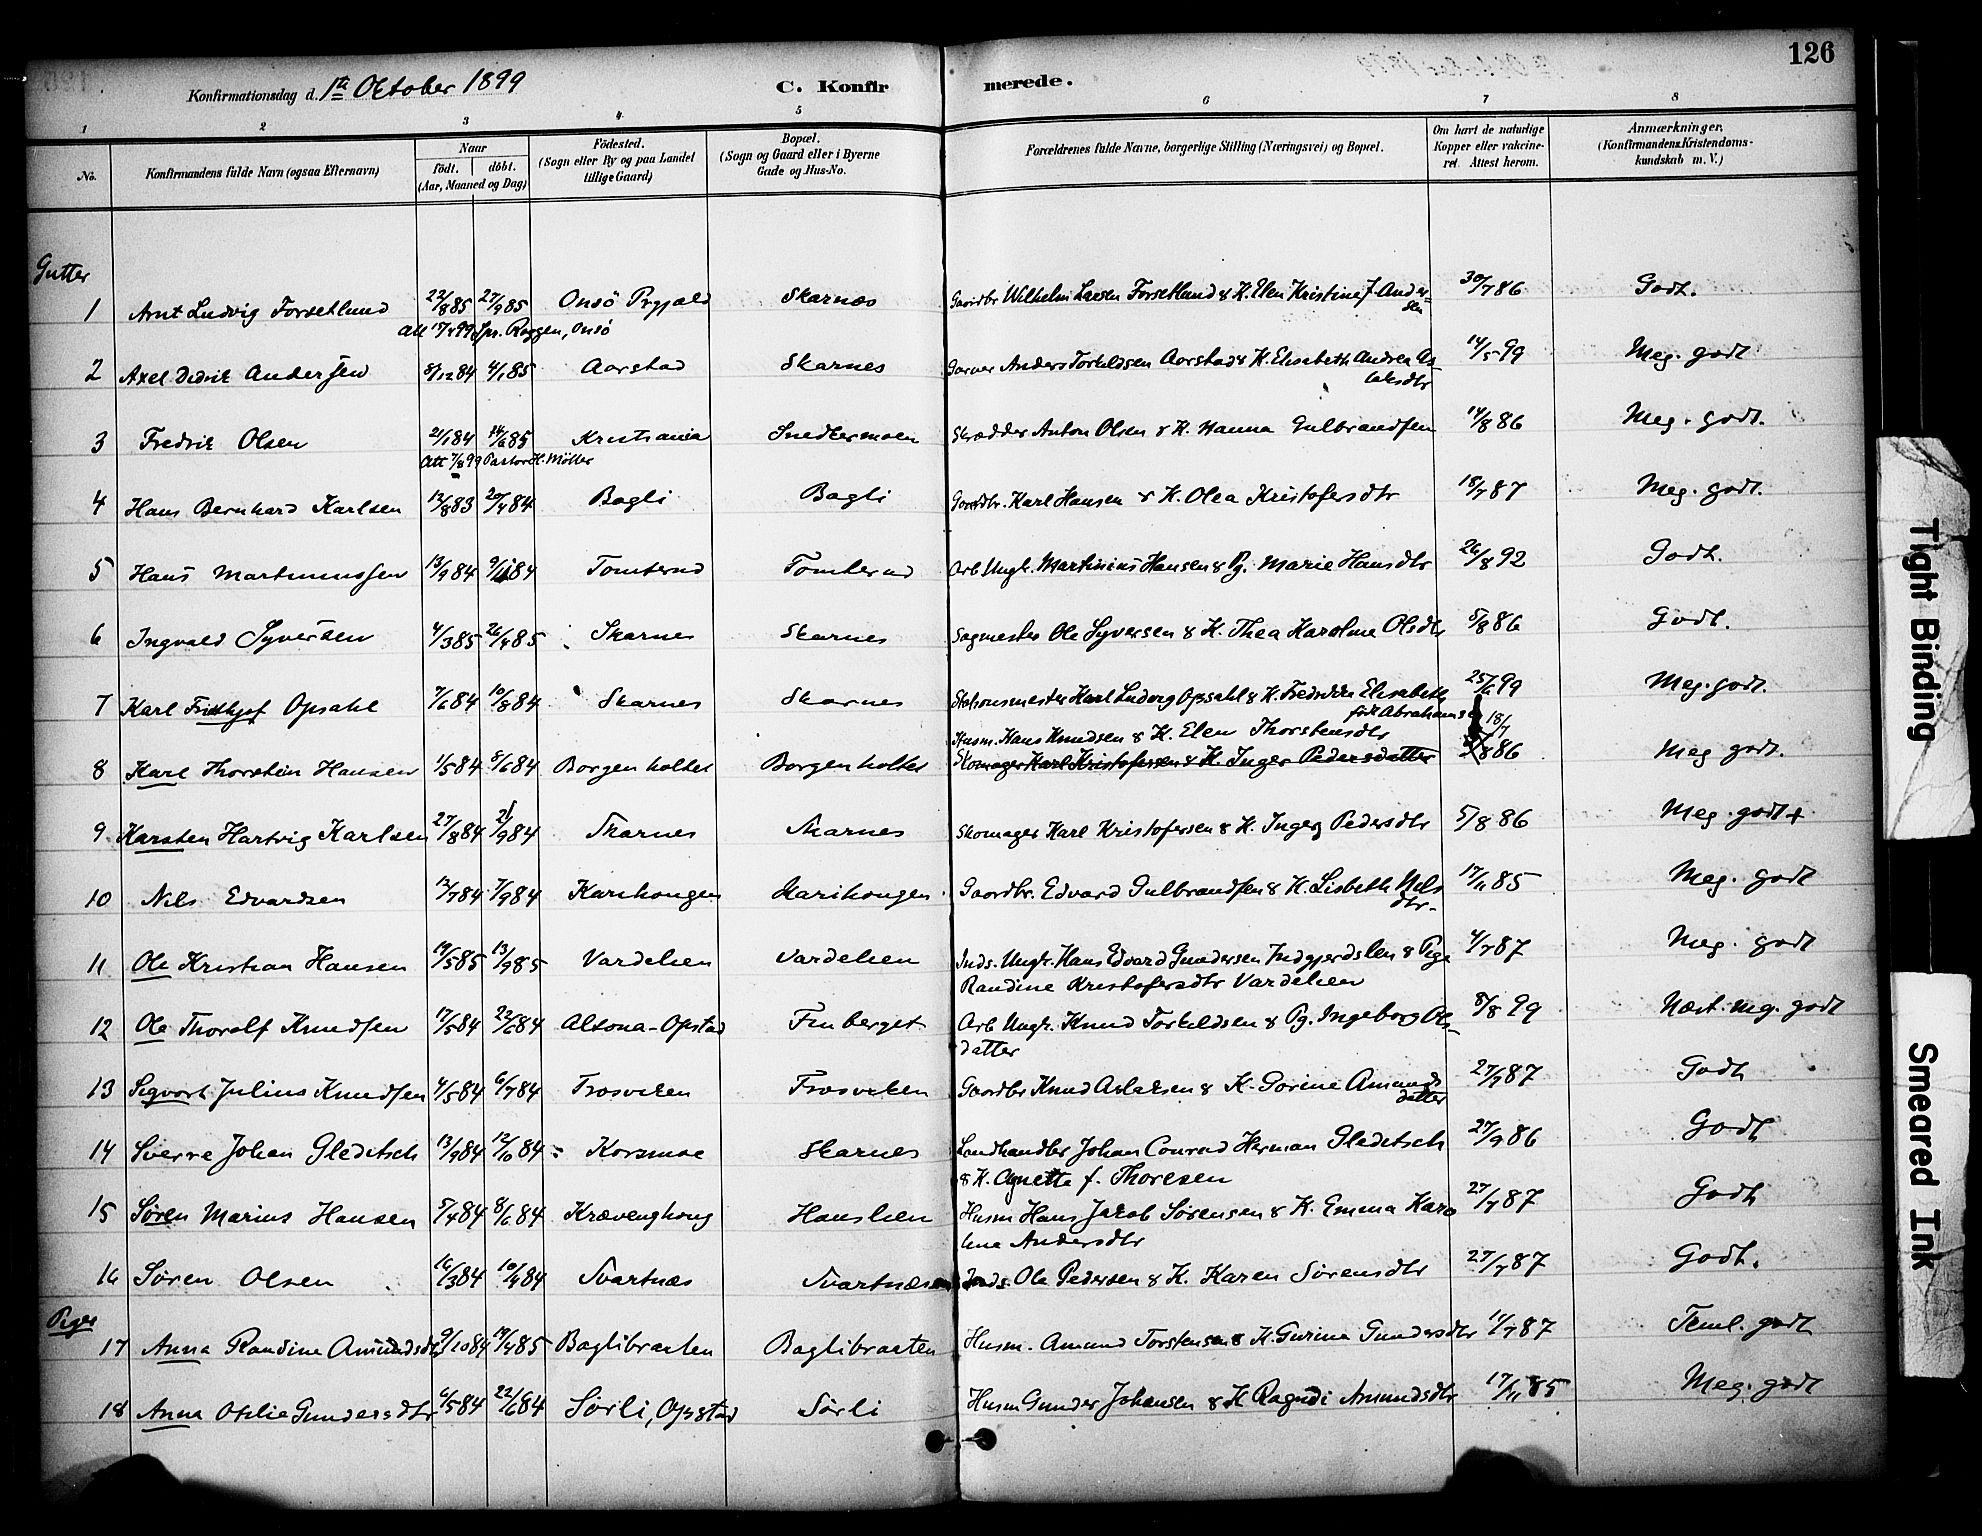 126
Konfirmationsdag d. 1ste Oktober 1899
C. Konfirmerede.
1 2 3 4 5 6 7 8
No.
Konfirmandens fulde Navn (ogsaa Efternavn)
Naar
födt. döbt.
(Aar, Maaned og Dag)
Födested.
(Sogn eller By og paa Landet
tillige Gaard)
Bopæl.
(Sogn og Gaard eller i Byerne
Gade og Hus-No.
Forældrenes fulde Navne, borgerlige Stilling (Næringsvei) og Bopæl.
Om havt de naturlige
Kopper eller vakcine-
ret. Attest herom.
Anmærkninger.
(Konfirmandens Kristendoms-
kundskab m. V.)
Gutter
1 Arnt Ludvig Forsetlund 22/8 85 27/9 85 Onsö Prgjæld Skarnæs Gaardbr Wilhelm Larsen Forsetlund & K. Elen Kristine f. Ander- 30/7 86 Godt.
sen
Att 17/4 99 Spr. Roggen, Onsö
2 Axel Didrik Andersen 8/12 84 4/1 85 Aarstad Skarnes Garver Anders Torkildsen Aarstad & K. Elisabeth Andrea As- 14/5 99 Meg. godt
laksdtr
3 Fredrik Olsen 21/6 84 14/6 85 Kristiania Snedkermoen Skrædder Anton Olsen & K. Hanna Gulbrandsen 14/8 86 Meg. godt.
Att 7/8 99 Pastor H. Möller
4 Hans Bernhard Karlsen 12/8 83 20/4 84 Bagli Bagli Gaardbr. Karl Hansen & K. Olea Kristofersdtr 18/7 87 Meg. godt.
5 Hans Martinussen 13/9 84 9/11 84 Tomterud Tomterud Arb. Ungk. Martinius Hansen & Pg. Marie Hansdtr 26/8 92 Godt.
6 Ingvald Syversen 4/3 85 26/4 85 Skarnes Skarnes Sagmester Ole Syversen & K. Thea Karoline Olsdtr 5/8 86 Godt.
7 Karl Fridthjof Opsahl 7/6 84 10/8 84 Skarnes Skarnes Stationsmester Karl Ludvig Opsahl & K. Fredrikke Elisabeth 25/6 99 Meg. godt.
født Abrahamsen
Husm. Hans Knudsen & K. Elen Thorstensdtr 18/7
8 Karl Thorstein Hansen 1/5 84 8/6 84 Borgenholtet Borgenholtet Skomager Karl Kristofersen & K. Inger Pedersdatter 86 Meg godt.
9 Karsten Hartvig Karlsen 27/8 84 21/9 84 Skarnes Skarnes Skomager Karl Kristofersen & K. Inger Pedersdtr 5/8 86 Meg. godt+
10 Nils Edvardsen 12/7 84 7/9 84 Karihougen Karihougen Gaardbr. Edvard Gulbrandsen & K. Lisbeth Nils 17/11 85 Meg. godt
dtr.
11 Ole Kristian Hansen 19/5 85 13/9 85 Vardelien Vardelien Inds. Ungk. Hans Edvard Gundersen Indgjerdslien & Pige 4/7 87 Meg. godt
Randine Kristofersdtr Vardelien
12 Ole Thorolf Knudsen 17/5 84 22/6 84 Altona-Opstad Furberget Arb Ungk. Knud Torkildsen & Pg. Ingeborg Ols- 8/8 99 Næst. meg. godt
datter
13 Sigvart Julius Knudsen 4/5 84 6/7 84 Frosviken Frosviken Gaardbr Knud Aslaksen & K. Gorine Amunds 27/7 87 Godt
datter
14 Sverre Johan Gleditsch 13/9 84 12/10 84 Korsmoe Skarnes Landhandler Johan Conrad Herman Gleditsch 27/9 86 Godt
& K. Agnette f. Thoresen
15 Søren Marius Hansen 5/4 84 8/6 84 Krævenghoug Hanslien Husm Hans Jakob Sørensen & K. Emma Karo 27/7 87 Godt
line Andersdtr
16 Søren Olsen 16/3 84 10/4 84 Svartnæs Svartnæs Inds. Ole Pedersen & K. Karen Sørensdtr 27/7 87 Godt.
Piger
17 Anna Randine Amundsdtr 9/10 84 19/4 85 Baglibraaten Baglibraaten Husm. Amund Torstensen & K. Gurina Gundersdtr 11/7 87 Teml. godt
18 Anna Otilie Gundersdtr 6/5 84 22/6 84 Sørli, Opstad Sørli Husm Gunder Johansen & K Ragndi Amundsdtr 17/11 85 Meg. godt
Tight Binding
Smeared Ink